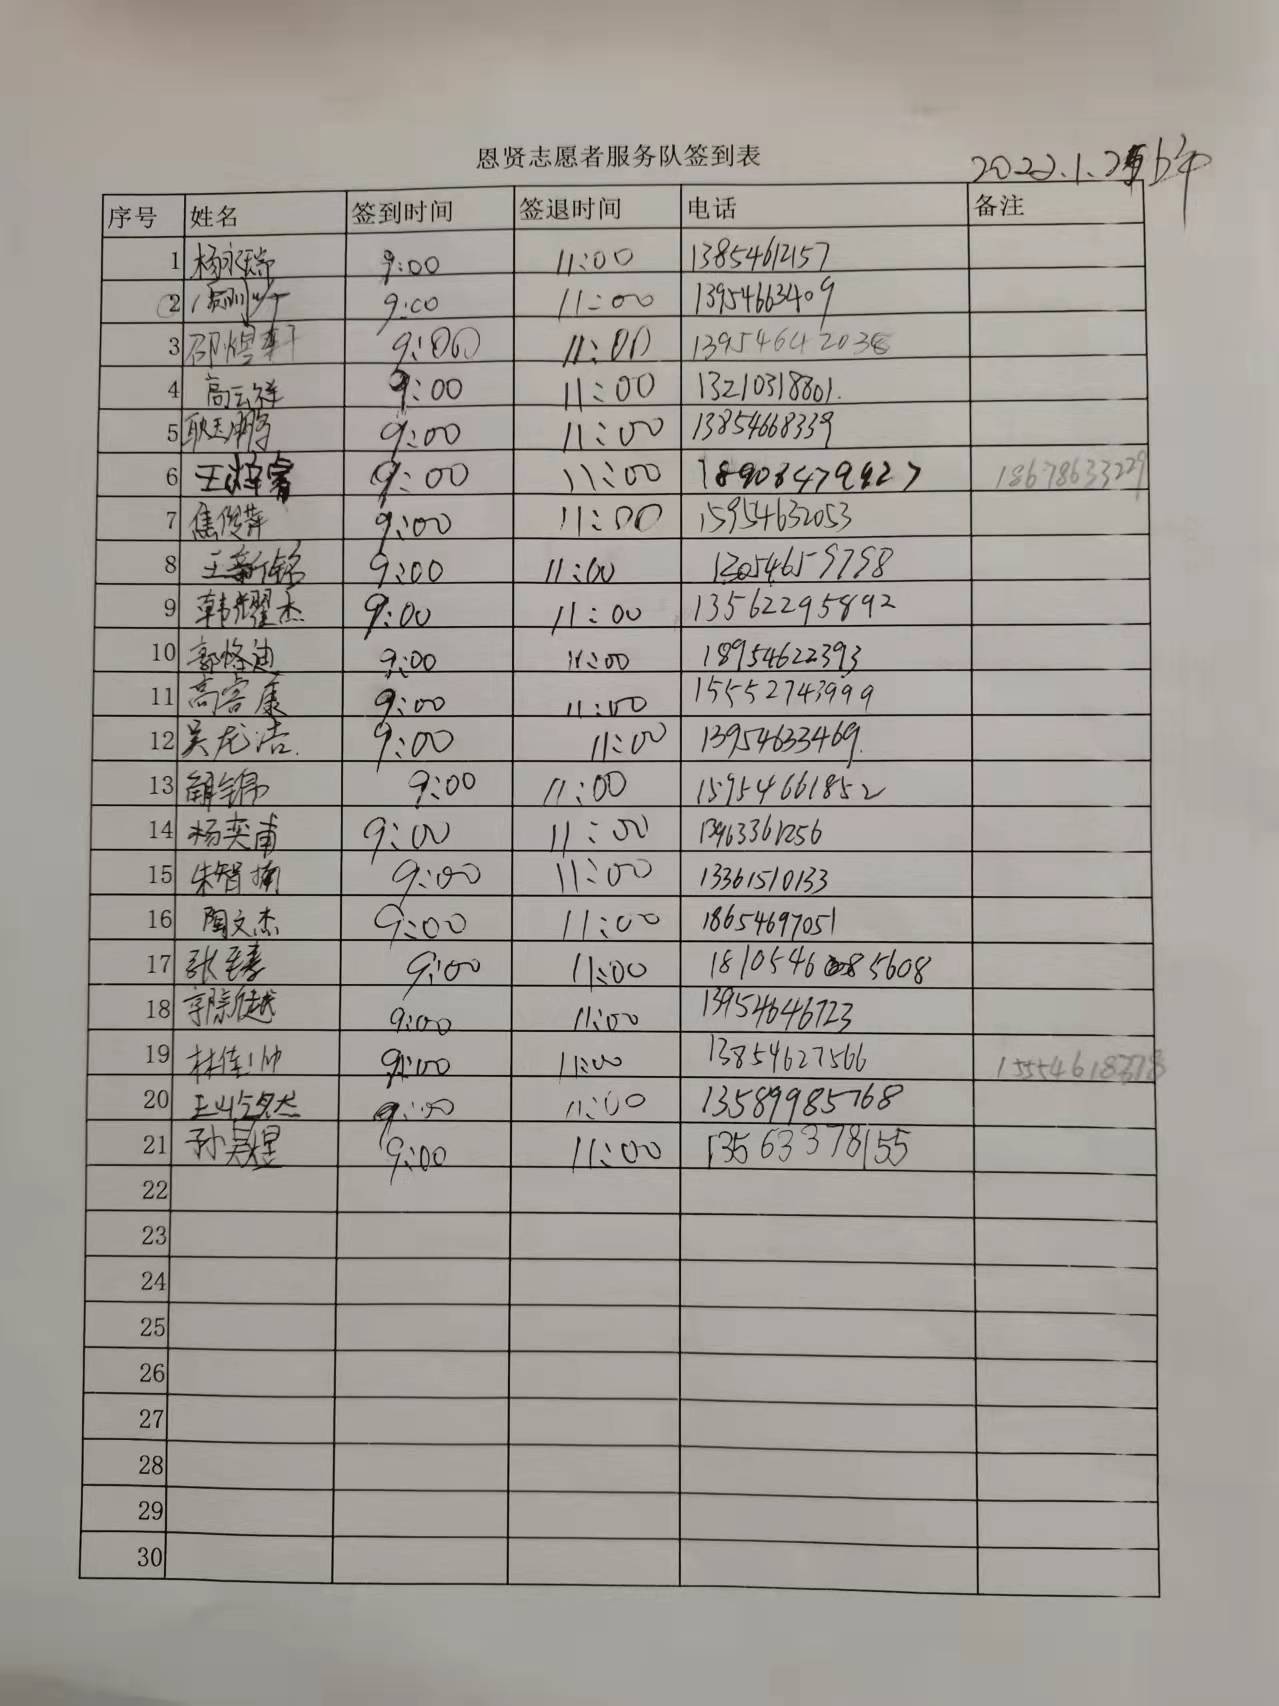 恩贤志愿者服务队签到表
2022.1.25
序号 姓名 签到时间 签退时间 电话 备注
1 杨永瑞 9:00 11:00 13854612157
2 9:00 11:00 13954663409
3 邵煜轩 9:00 11:00 13954642038
4 高云祥 9:00 11:00 13210318801.
5 9:00 11:00 13854668339
6 王梓睿 9:00 11:00 18903479927 18678633229
7 焦俊萍 9:00 11:00 15954632053
8 王新铭 9:00 11:00 13054659798
9 韩耀杰 9:00 11:00 13562295892
10 郭恪迪 9:00 11:00 18954622393
11 高睿康 9:00 11:00 15552743999
12 吴龙浩. 9:00 11:00 13954633469.
13 9:00 11:00 15954661852
14 杨奕甫 9:00 11:00 13963361256
15 朱智楠 9:00 11:00 13361510133
16 陶文杰 9:00 11:00 18654697051
17 9:00 11:00 1810546 85608
18 9:00 11:00 13954646723
19 林佳帅 9:00 11:00 13854627566
20 9:00 11:00 13589985768
21 孙昊煜 9:00 11:00 13563378155
22
23
24
25
26
27
28
29
30